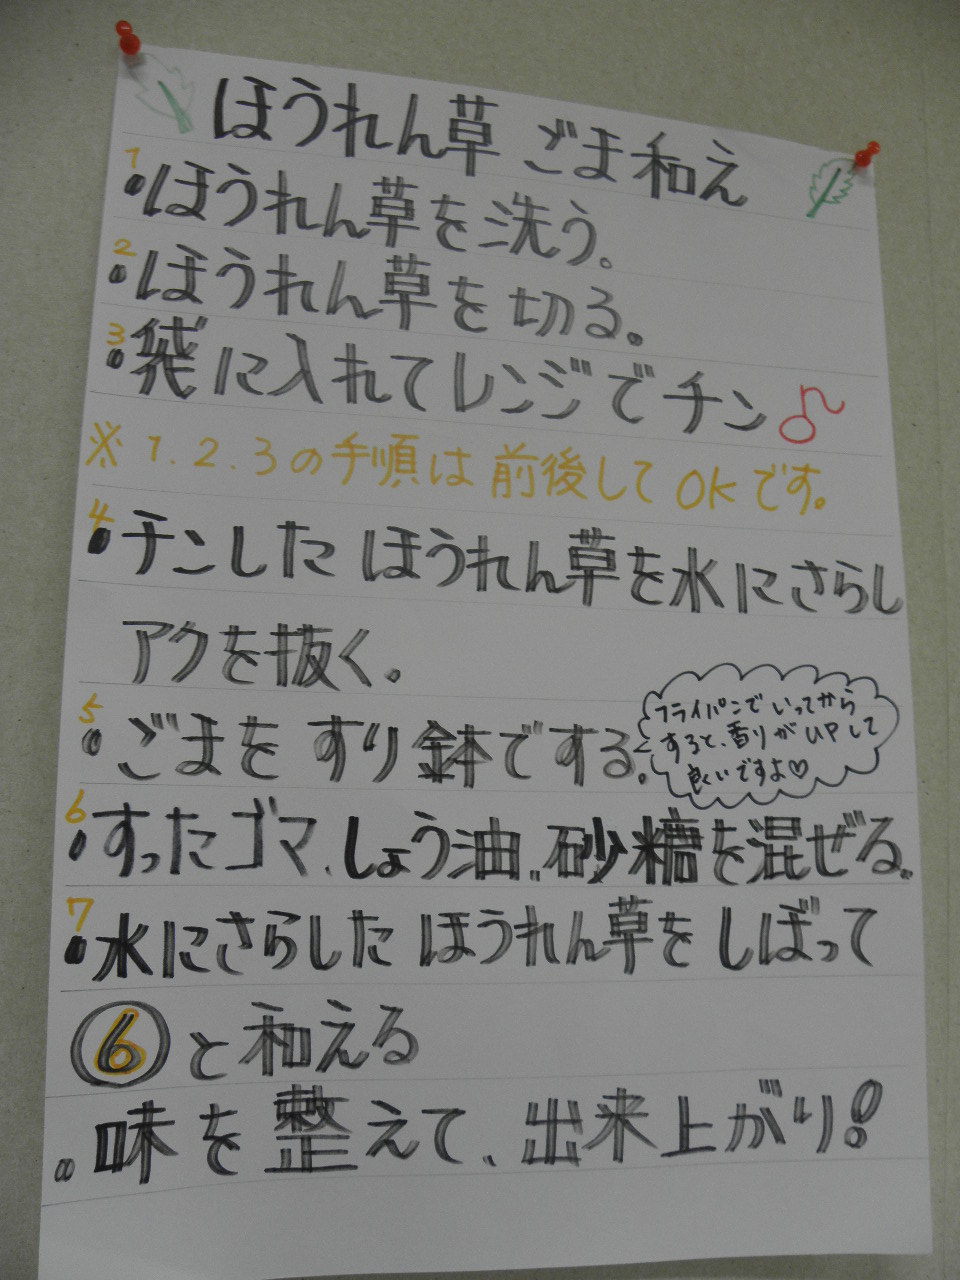 ほうれん草 ごま和え
1・ほうれん草を洗う。
2・ほうれん草を切る。
3・袋に入れてレンジでチン♪
※1.2.3の手順は前後してOKです。
4・チンしたほうれん草を水にさらし
アクを抜く。
5・ごまをすり鉢でする。
フライパンでいってから
すると、香りがUPして
良いですよ♡
6・すったゴマ、しょう油、砂糖を混ぜる。
7・水にさらしたほうれん草をしばって
⑥と和える
・味を整えて、出来上がり!